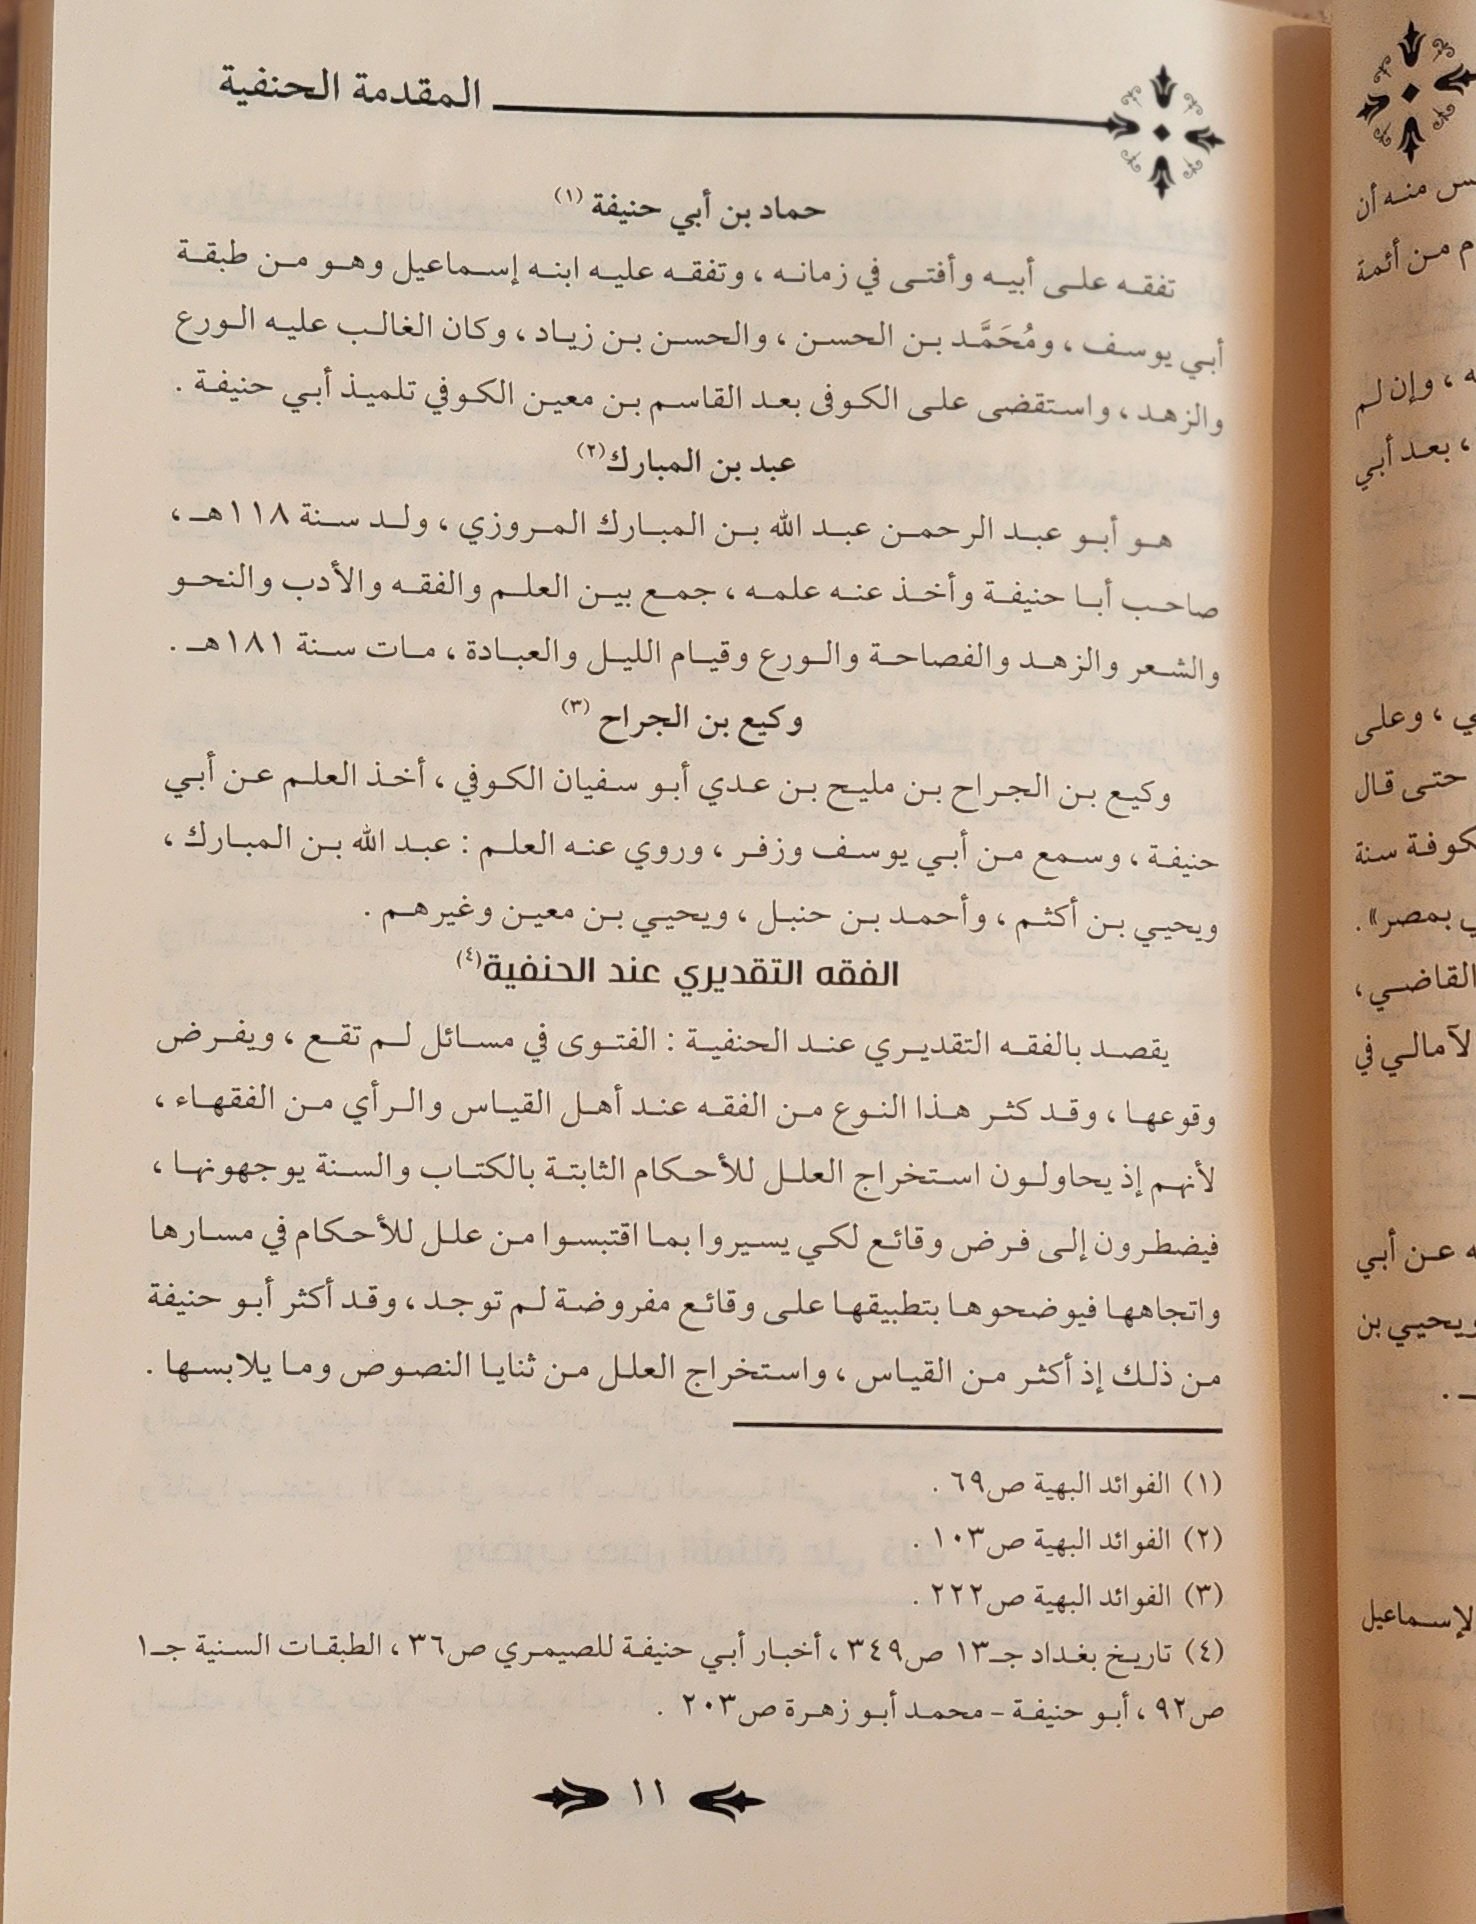 المقدمة الحنفية
حماد بن أبي حنيفة (١)
تفقه على أبيه وأفتى في زمانه ، وتفقه عليه ابنه إسماعيل وهو من طبقة
أبي يوسف ، ومُحَمَّد بن الحسن ، والحسن بن زياد ، وكان الغالب عليه الورع
والزهد ، واستقضى على الكوفى بعد القاسم بن معين الكوفي تلميذ أبي حنيفة .
عبد بن المبارك(٢)
هو أبو عبد الرحمن عبد الله بن المبارك المروزي ، ولد سنة ١١٨هـ ،
صاحب أبا حنيفة وأخذ عنه علمه ، جمع بين العلم والفقه والأدب والنحو
والشعر والزهد والفصاحة والورع وقيام الليل والعبادة ، مات سنة ١٨١هـ .
وكيع بن الجراح (٣)
وكيع بن الجراح بن مليح بن عدي أبو سفيان الكوفي ، أخذ العلم عن أبي
حنيفة ، وسمع من أبي يوسف وزفر ، وروي عنه العلم : عبد الله بن المبارك ،
ويحيي بن أكثم ، وأحمد بن حنبل ، ويحيي بن معين وغيرهم .
الفقه التقديري عند الحنفية(٤)
يقصد بالفقه التقديري عند الحنفية : الفتوى في مسائل لم تقع ، ويفرض
وقوعها ، وقد كثر هذا النوع من الفقه عند أهل القياس والرأي من الفقهاء ،
لأنهم إذ يحاولون استخراج العلل للأحكام الثابتة بالكتاب والسنة يوجهونها ،
فيضطرون إلى فرض وقائع لكي يسيروا بما اقتبسوا من علل للأحكام في مسارها
واتجاهها فيوضحوها بتطبيقها على وقائع مفروضة لم توجد ، وقد أكثر أبو حنيفة
من ذلك إذ أكثر من القياس ، واستخراج العلل من ثنايا النصوص وما يلابسها .
(١) الفوائد البهية ص٦٩ .
(٢) الفوائد البهية ص١٠٣ .
(٣) الفوائد البهية ص٢٢٢ .
(٤) تاريخ بغداد جـ١٣ ص٣٤٩ ، أخبار أبي حنيفة للصيمري ص٣٦ ، الطبقات السنية جـ١
ص٩٢ ، أبو حنيفة - محمد أبو زهرة ص٢٠٣ .
١١
منه أن
من أئمة
، وإن لم
، بعد أبي
، وعلى
حتى قال
سنة
بمصر» .
القاضي ،
الآمالي في
عن أبي
ويحيي بن
لإسماعيل